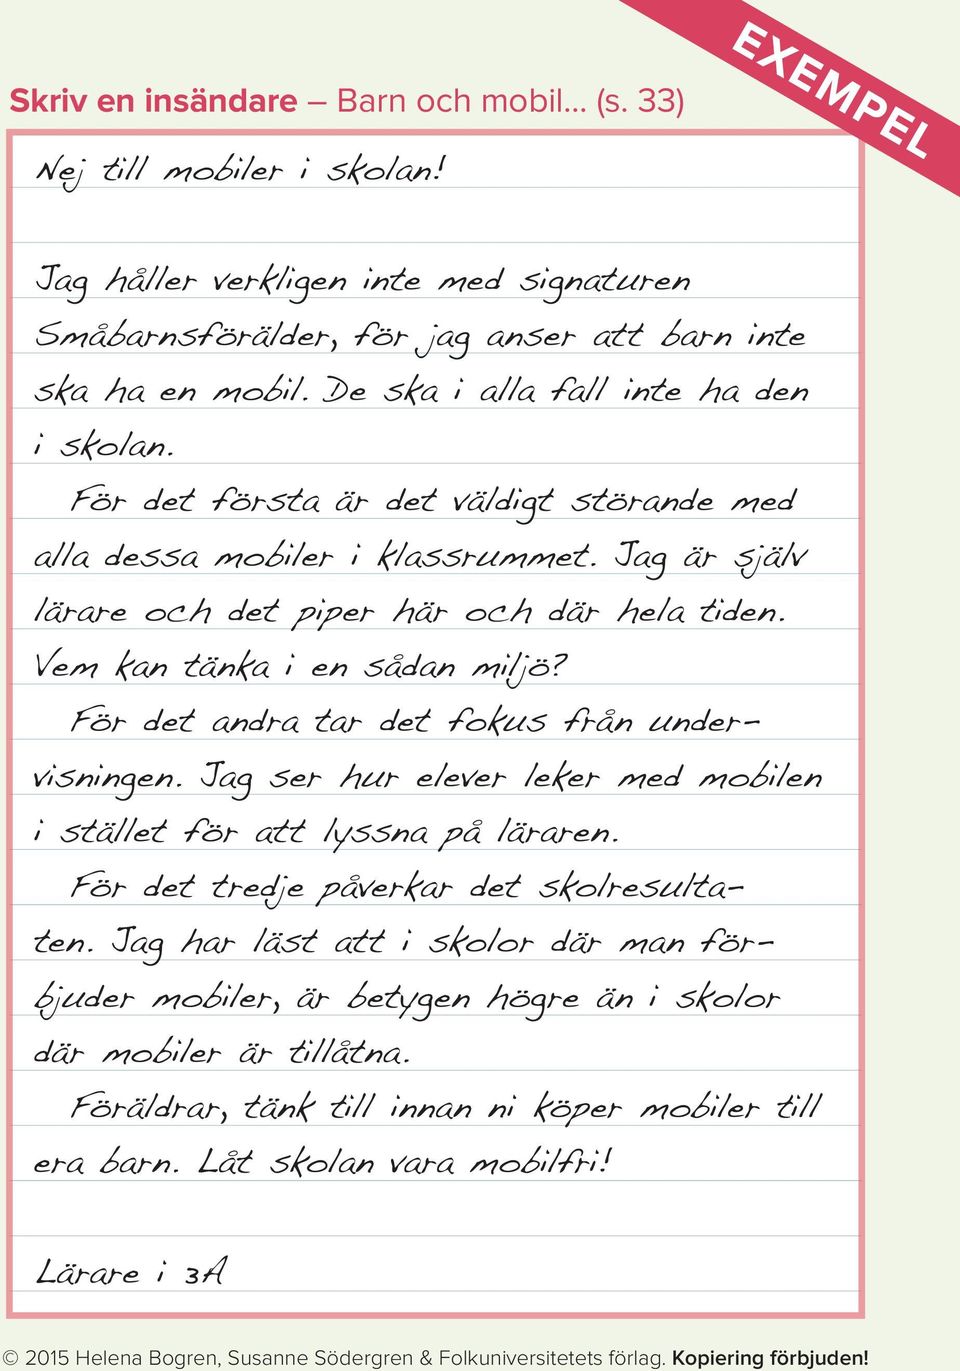 EXEMPEL
Skriv en insändare – Barn och mobil... (s. 33)
Nej till mobiler i skolan!
Jag håller verkligen inte med signaturen
Småbarnsförälder, för jag anser att barn inte
ska ha en mobil. De ska i alla fall inte ha den
i skolan.
För det första är det väldigt störande med
alla dessa mobiler i klassrummet. Jag är själv
lärare och det piper här och där hela tiden.
Vem kan tänka i en sådan miljö?
För det andra tar det fokus från under-
visningen. Jag ser hur elever leker med mobilen
i stället för att lyssna på läraren.
För det tredje påverkar det skolresulta-
ten. Jag har läst att i skolor där man för-
bjuder mobiler, är betygen högre än i skolor
där mobiler är tillåtna.
Föräldrar, tänk till innan ni köper mobiler till
era barn. Låt skolan vara mobilfri!
Lärare i 3A
© 2015 Helena Bogren, Susanne Södergren & Folkuniversitetets förlag. Kopiering förbjuden!